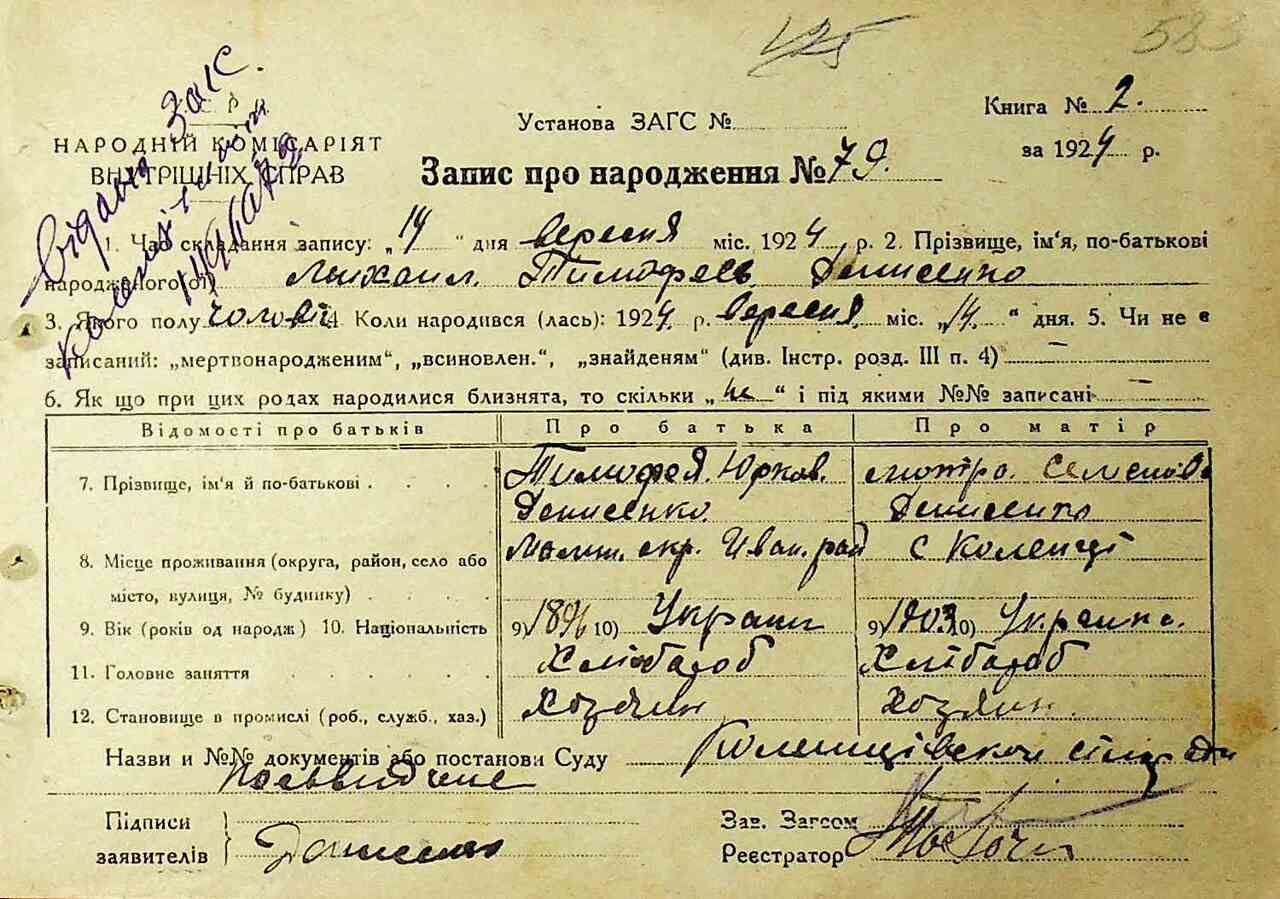 425
583
Видано ЗАГС
НАРОДНІЙ КОМІСАРІЯТ
ВНУТРІШНІХ СПРАВ
Установа ЗАГС №
Книга № 2.
за 1924 р.
Запис про народження № 79.
1. Час складання запису: „14“ дня вересня міс. 1924 р. 2. Прізвище, ім‘я, по-батькові
народженого о(ї) Михаил Тимофеев Денисенко
3. Якого полу чоловіч 4. Коли народився (лась): 1924 р. вересня міс. „14.“ дня. 5. Чи не є
записаний: „мертвонародженим“, „всиновлен.“, „знайденям“ (див. Інстр. розд. III п. 4) —
6. Як що при цих родах народилися близнята, то скільки „не“ і під якими №№ записані —
Відомості про батьків Про батька Про матір
7. Прізвище, ім‘я й по-батькові Тимофея Юрков. Мотра Семенова
Денисенко Денисенко
8. Місце проживання (округа, район, село або Малин. окр. Иван. рай с Коленці
місто, вулиця, № будинку)
9. Вік (років од народж) 10. Національність 9) 1896 10) Украин 9) 1903 10) Украинка
11. Головне заняття Хлібороб Хлібороб
12. Становище в промислі (роб., служб., хаз.) Хозяин Хозяин
Назви и №№ документів або постанови Суду Коленцівской сільради
Посвидчене
Підписи
заявителів Денисенко
Зав. Загсом
Реєстратор